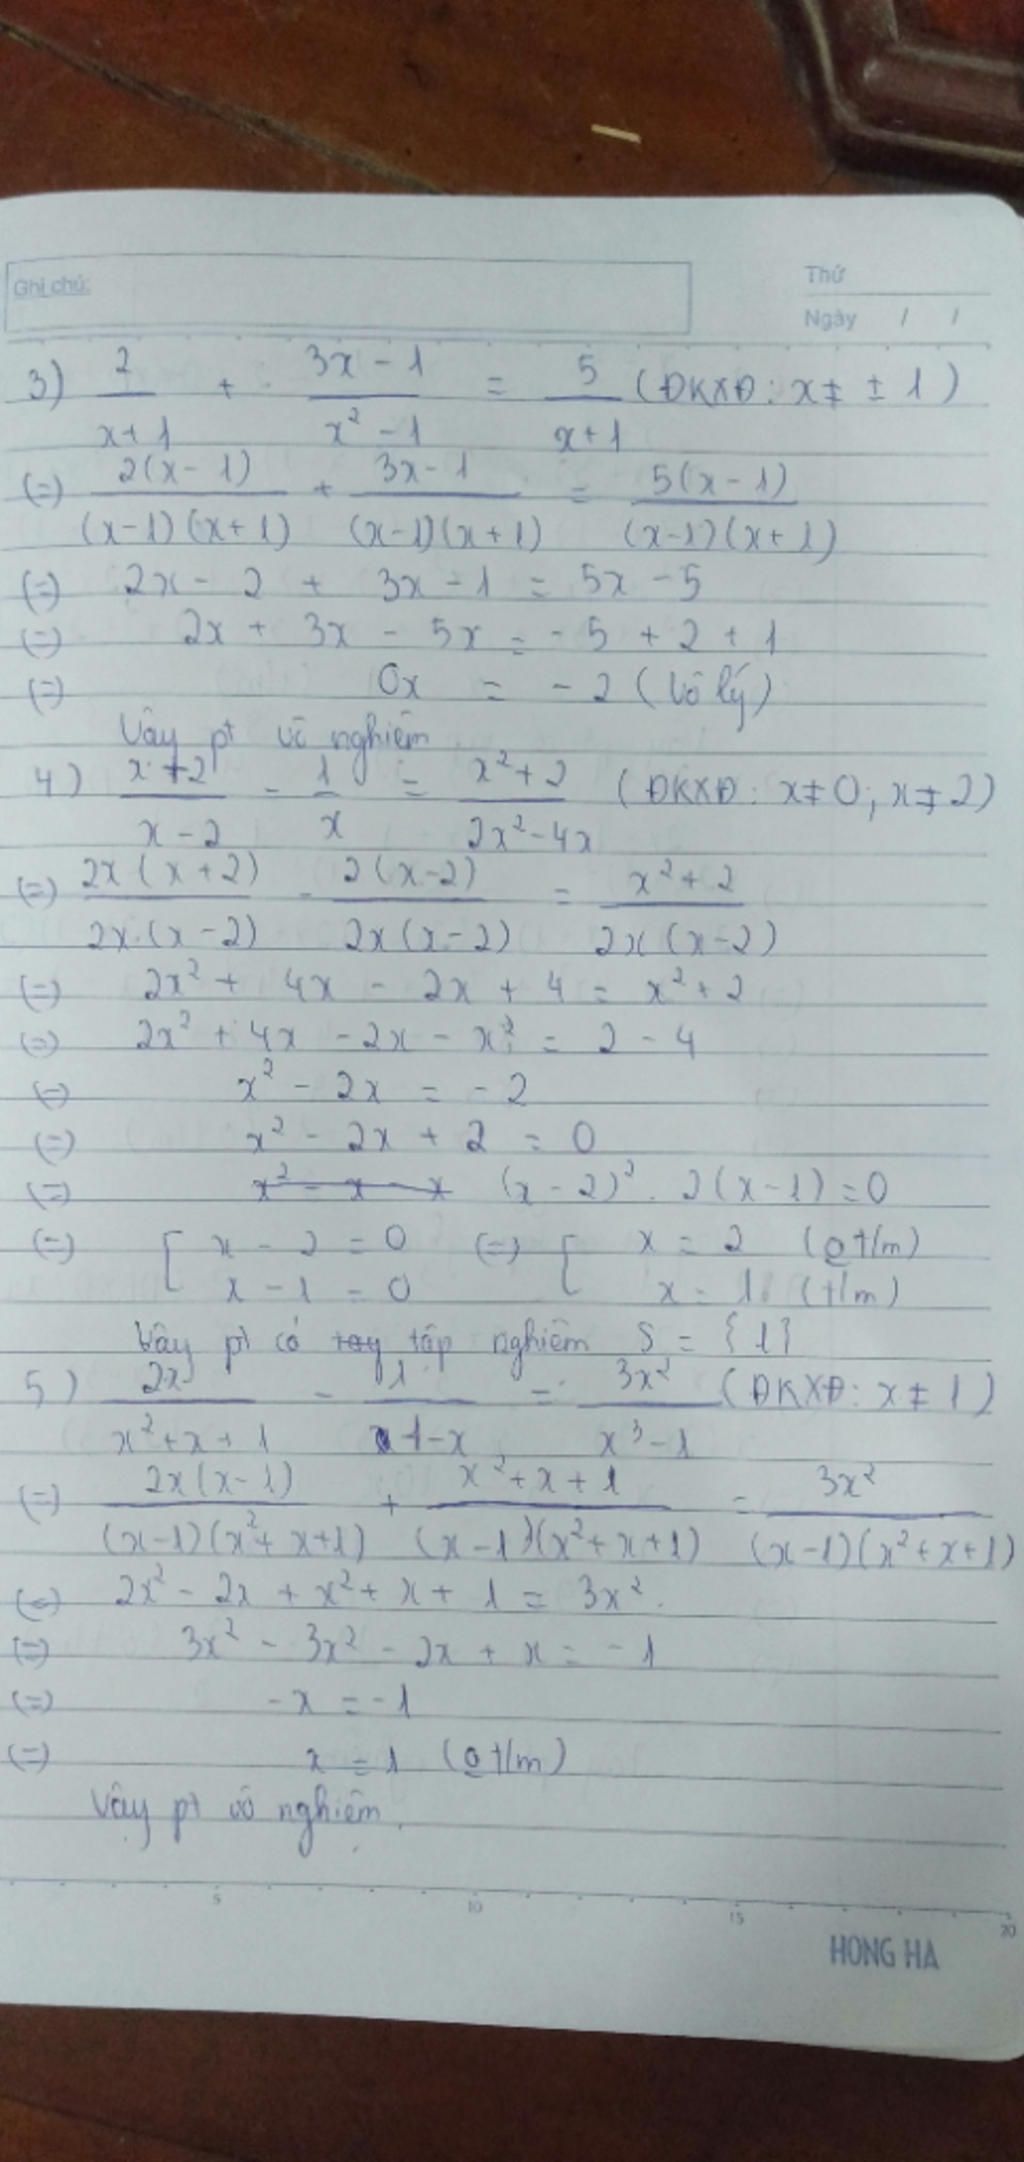 Ghi chú:
Thứ
Ngày / /
3) 2/(x+1) + (3x-1)/(x²-1) = 5/(x+1) (ĐKXĐ: x ≠ ± 1)
(=) 2(x-1)/((x-1)(x+1)) + (3x-1)/((x-1)(x+1)) = 5(x-1)/((x-1)(x+1))
(=) 2x - 2 + 3x - 1 = 5x - 5
(=) 2x + 3x - 5x = - 5 + 2 + 1
(=) 0x = - 2 (vô lý)
Vậy pt vô nghiệm
4) (x+2)/(x-2) - 1/x = (x²+2)/(2x²-4x) (ĐKXĐ: x≠0; x≠2)
(=) 2x(x+2)/(2x.(x-2)) - 2(x-2)/(2x(x-2)) = (x²+2)/(2x(x-2))
(=) 2x² + 4x - 2x + 4 = x² + 2
(=) 2x² + 4x - 2x - x² = 2 - 4
(=) x² - 2x = - 2
(=) x² - 2x + 2 = 0
(=) (x-2)² . 2(x-1) = 0
(=) [ x - 2 = 0 (=) [ x = 2 (0 t/m)
x - 1 = 0 x = 1 (t/m)
Vậy pt có tập nghiệm S = {1}
5) 2x/(x²+x+1) - 1/(1-x) = 3x²/(x³-1) (ĐKXĐ: x ≠ 1)
(=) 2x(x-1)/((x-1)(x²+x+1)) + (x²+x+1)/((x-1)(x²+x+1)) = 3x²/((x-1)(x²+x+1))
(=) 2x² - 2x + x² + x + 1 = 3x²
(=) 3x² - 3x² - 2x + x = - 1
(=) - x = - 1
(=) x = 1 (0 t/m)
Vậy pt vô nghiệm.
5 10 15 20
HONG HA